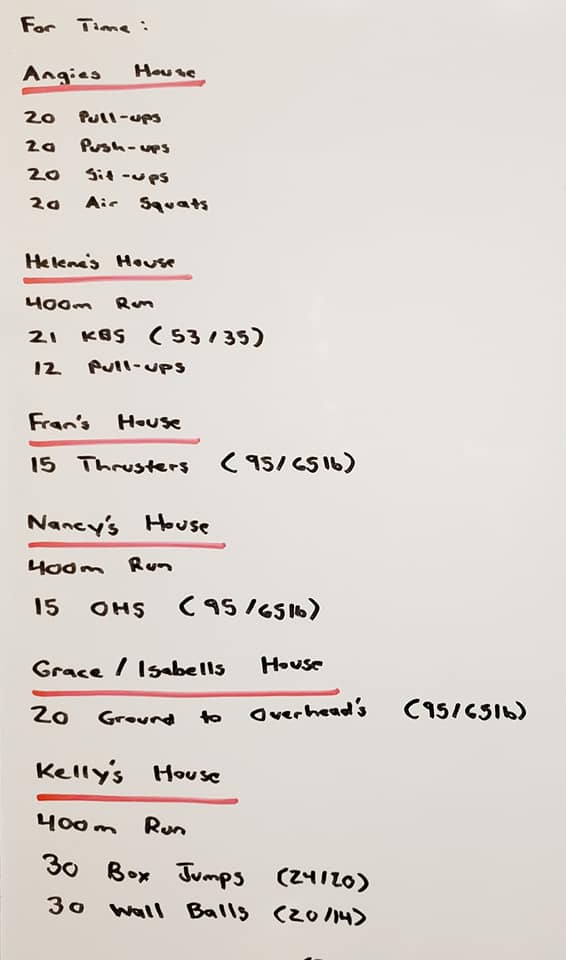 For Time:
Angies House
20 Pull-ups
20 Push-ups
20 Sit-ups
20 Air Squats
Helene's House
400m Run
21 KBS (53/35)
12 Pull-ups
Fran's House
15 Thrusters (95/65lb)
Nancy's House
400m Run
15 OHS (95/65lb)
Grace / Isabells House
20 Ground to Overhead's (95/65lb)
Kelly's House
400m Run
30 Box Jumps (24/20)
30 Wall Balls (20/14)